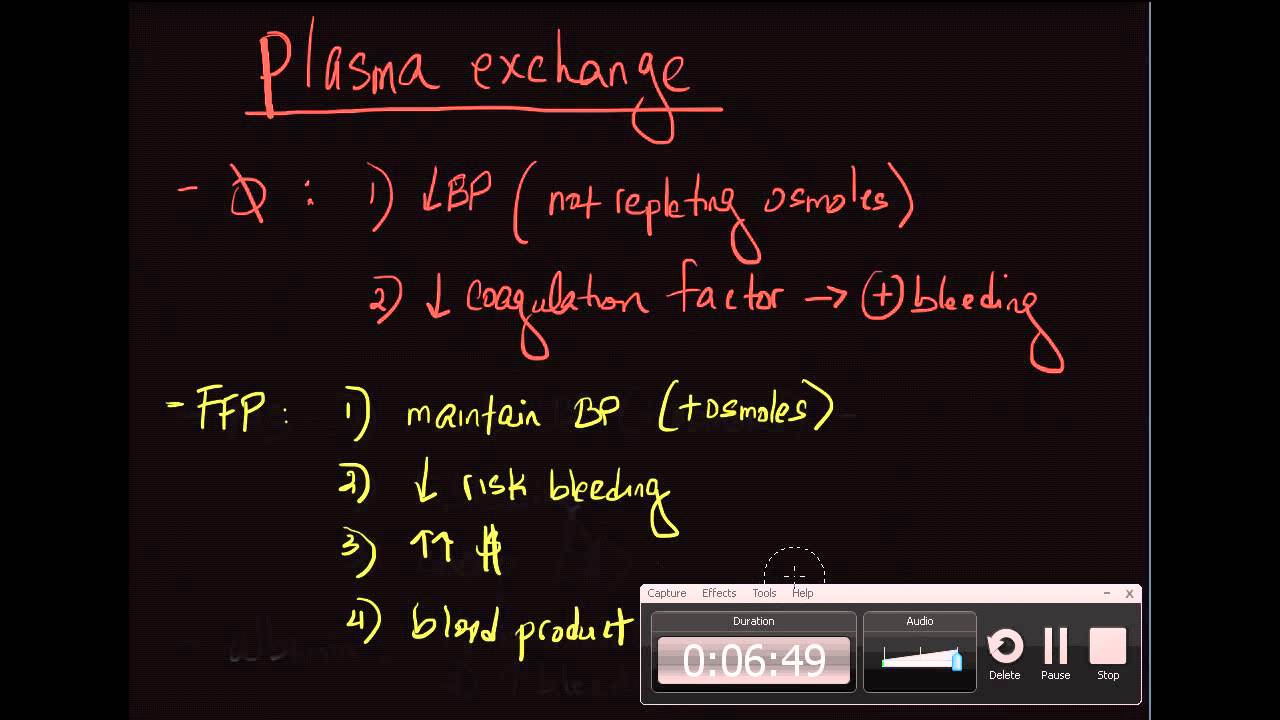 Plasma exchange
- Ø : 1) ↓BP (not repleting osmoles)
2) ↓ coagulation factor → (+) bleeding
- FFP : 1) maintain BP (+osmoles)
2) ↓ risk bleeding
3) ↑↑ $
4) blood product
Capture Effects Tools Help
Duration Audio
0:06:49
Delete Pause Stop